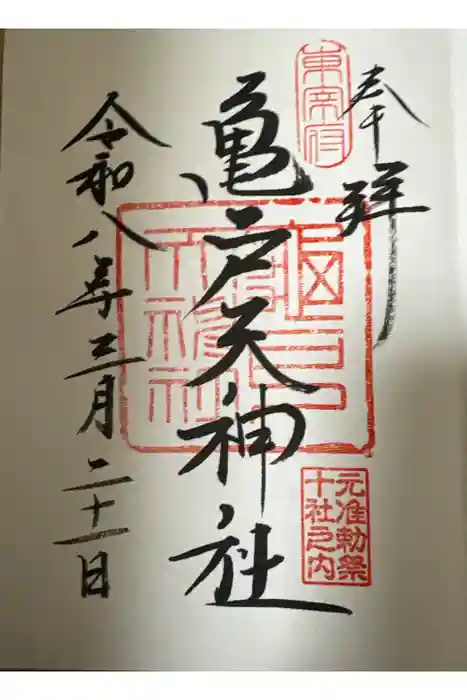 奉拝
東宰府
亀戸天神社
亀戸天神社
元准勅祭
十社之内
令和八年三月二十一日